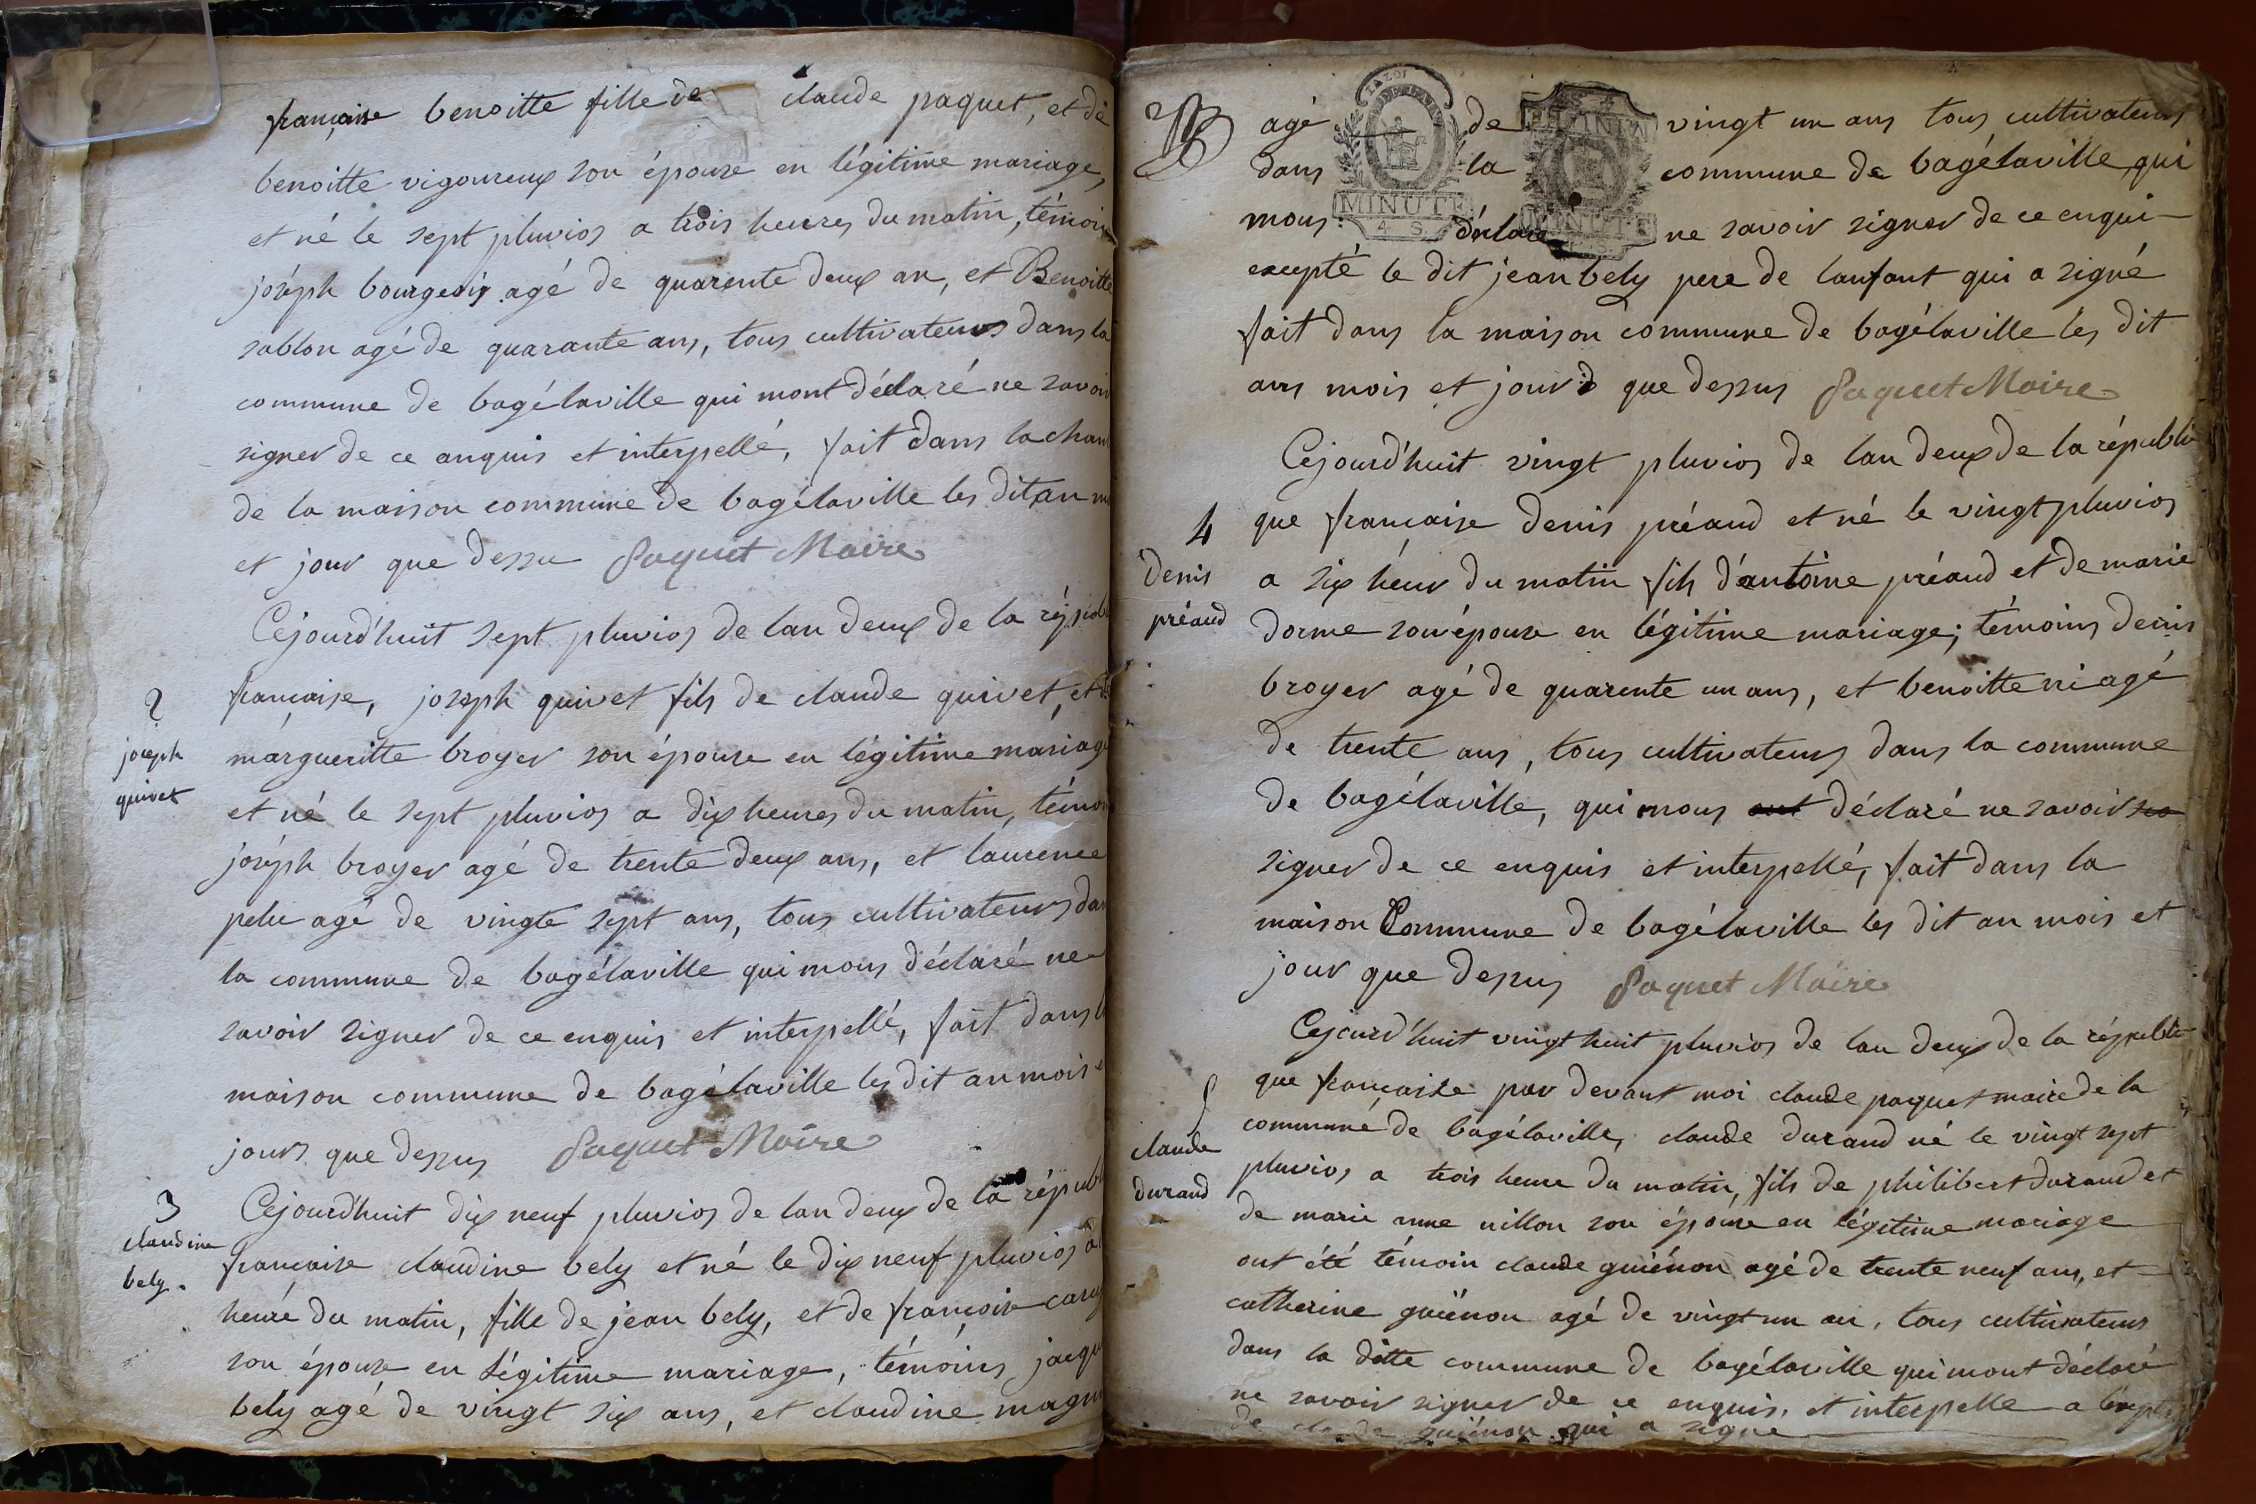 française benoitte fille de claude paquet, et de
benoitte vigoureux son épouse en légitime mariage,
et né le sept pluvios a trois heures du matin, témoin
joséph bourgeois agé de quarente deux an, et Benoitte
sablon agé de quarante ans, tous cultivateurs dans la
commune de bagélaville qui mont déclaré ne savoir
signer de ce anquis et interpellé, fait dans la cham
de la maison commune de bagélaville les dit an m
et jour que dessu Paquet Maire
Cejourd'huit sept pluvios de lan deux de la républ
2
joseph
quivet
française, joseph quivet fils de claude quivet, et de
margueritte broyer son épouse en légitime mariage
et né le sept pluvios a dix heures du matin, témoi
joséph broyer agé de trente deux ans, et laurence
pelu agé de vingte sept ans, tous cultivateurs dan
la commune de bagélaville qui mous déclaré ne
savoir signer de ce enquis et interpellé, fait dans l
maison commune de bagélaville les dit an mois e
jours que dessus Paquet Maire
3
claudine
bely.
Cejourd'huit dix neuf pluvios de lan deux de la républ
française claudine bely et né le dix neuf pluvios a
heure du matin, fille de jean bely, et de françoise
son épouse en légitime mariage, témoins jacque
bely agé de vingt six ans, et claudine magn
agé de vingt un ans tous cultivateurs
dans la commune de bagélaville qui
mous déclare ne savoir signer de ce enqui
MINUTE
4 S.
MINUTE
excepté le dit jean bely pere de lanfant qui a signé
fait dans la maison commune de bagélaville les dit
ans mois et jour que dessus Paquet Maire
Cejourd'huit vingt pluvios de lan deux de la républi
4
Denis
préaud
que francaise denis préaud et né le vingt pluvios
a six heur du matin fils d'antoine préaud et de marie
dorme son épouse en légitime mariage; témoins denis
broyer agé de quarente un ans, et benoitte ni agé
de trente ans, tous cultivateurs dans la commune
de bagélaville, qui mous ont déclaré ne savoir
signer de ce enquis et interpellé, fait dans la
maison Commune de bagélaville les dit an mois et
jour que dessus Paquet Maire
Cejourd'huit vingt huit pluvios de lan deux de la républi
5
claude
durand
que française par devant moi claude paquet maire de la
commune de bagélaville, claude durand né le vingt sept
pluvios a trois heure du matin, fils de philibert durand et
de marie anne nillon son épouse en légitime mariage
ont été témoin claude guiénon agé de trente neuf ans, et
catherine guiénon agé de vingt un an, tous cultivateurs
dans la ditte commune de bagélaville qui mont déclaré
ne savoir signer de ce enquis, et interpelle a
de claude guiénon qui a signe